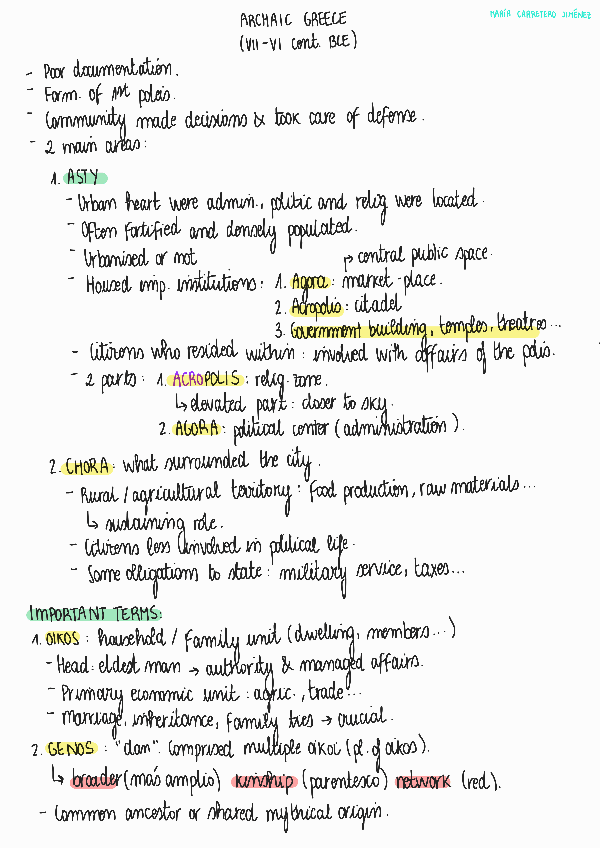 ARCHAIC GREECE
MARÍA CARRETERO JIMÉNEZ
(VII-VI cent. BCE)
- Poor documentation.
- Form. of 1st poleis.
- Community made decisions & took care of defense.
- 2 main areas:
1. ASTY
- Urban heart were admin., politic and relig were located.
- Often fortified and densely populated.
- Urbanised or not
↱ central public space.
- Housed imp. institutions: 1. Agora: market-place.
2. Acropolis: citadel
3. Government building, temples, theatres...
- Citizens who resided within: involved with affairs of the polis.
- 2 parts: 1. ACROPOLIS: relig. zone.
↳ elevated part: closer to sky.
2. AGORA: political center (administration).
2. CHORA: what surrounded the city.
- Rural / agricultural territory: food production, raw materials...
↳ sustaining role.
- Citizens less involved in political life.
- Some obligations to state: military service, taxes...
IMPORTANT TERMS:
1. OIKOS: household / family unit (dwelling, members...)
- Head: eldest man → authority & managed affairs.
- Primary economic unit: agric., trade...
- Marriage, inheritance, family ties → crucial.
2. GENOS: "clan". Comprised multiple oikoi (pl. of oikos).
↳ broader (más amplio) kinship (parentesco) network (red).
- Common ancestor or shared mythical origin.